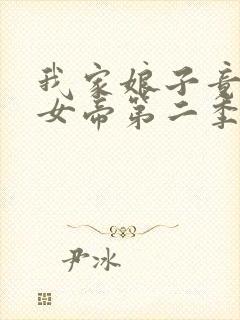 我家娘子竟
女帝第二季
尹冰